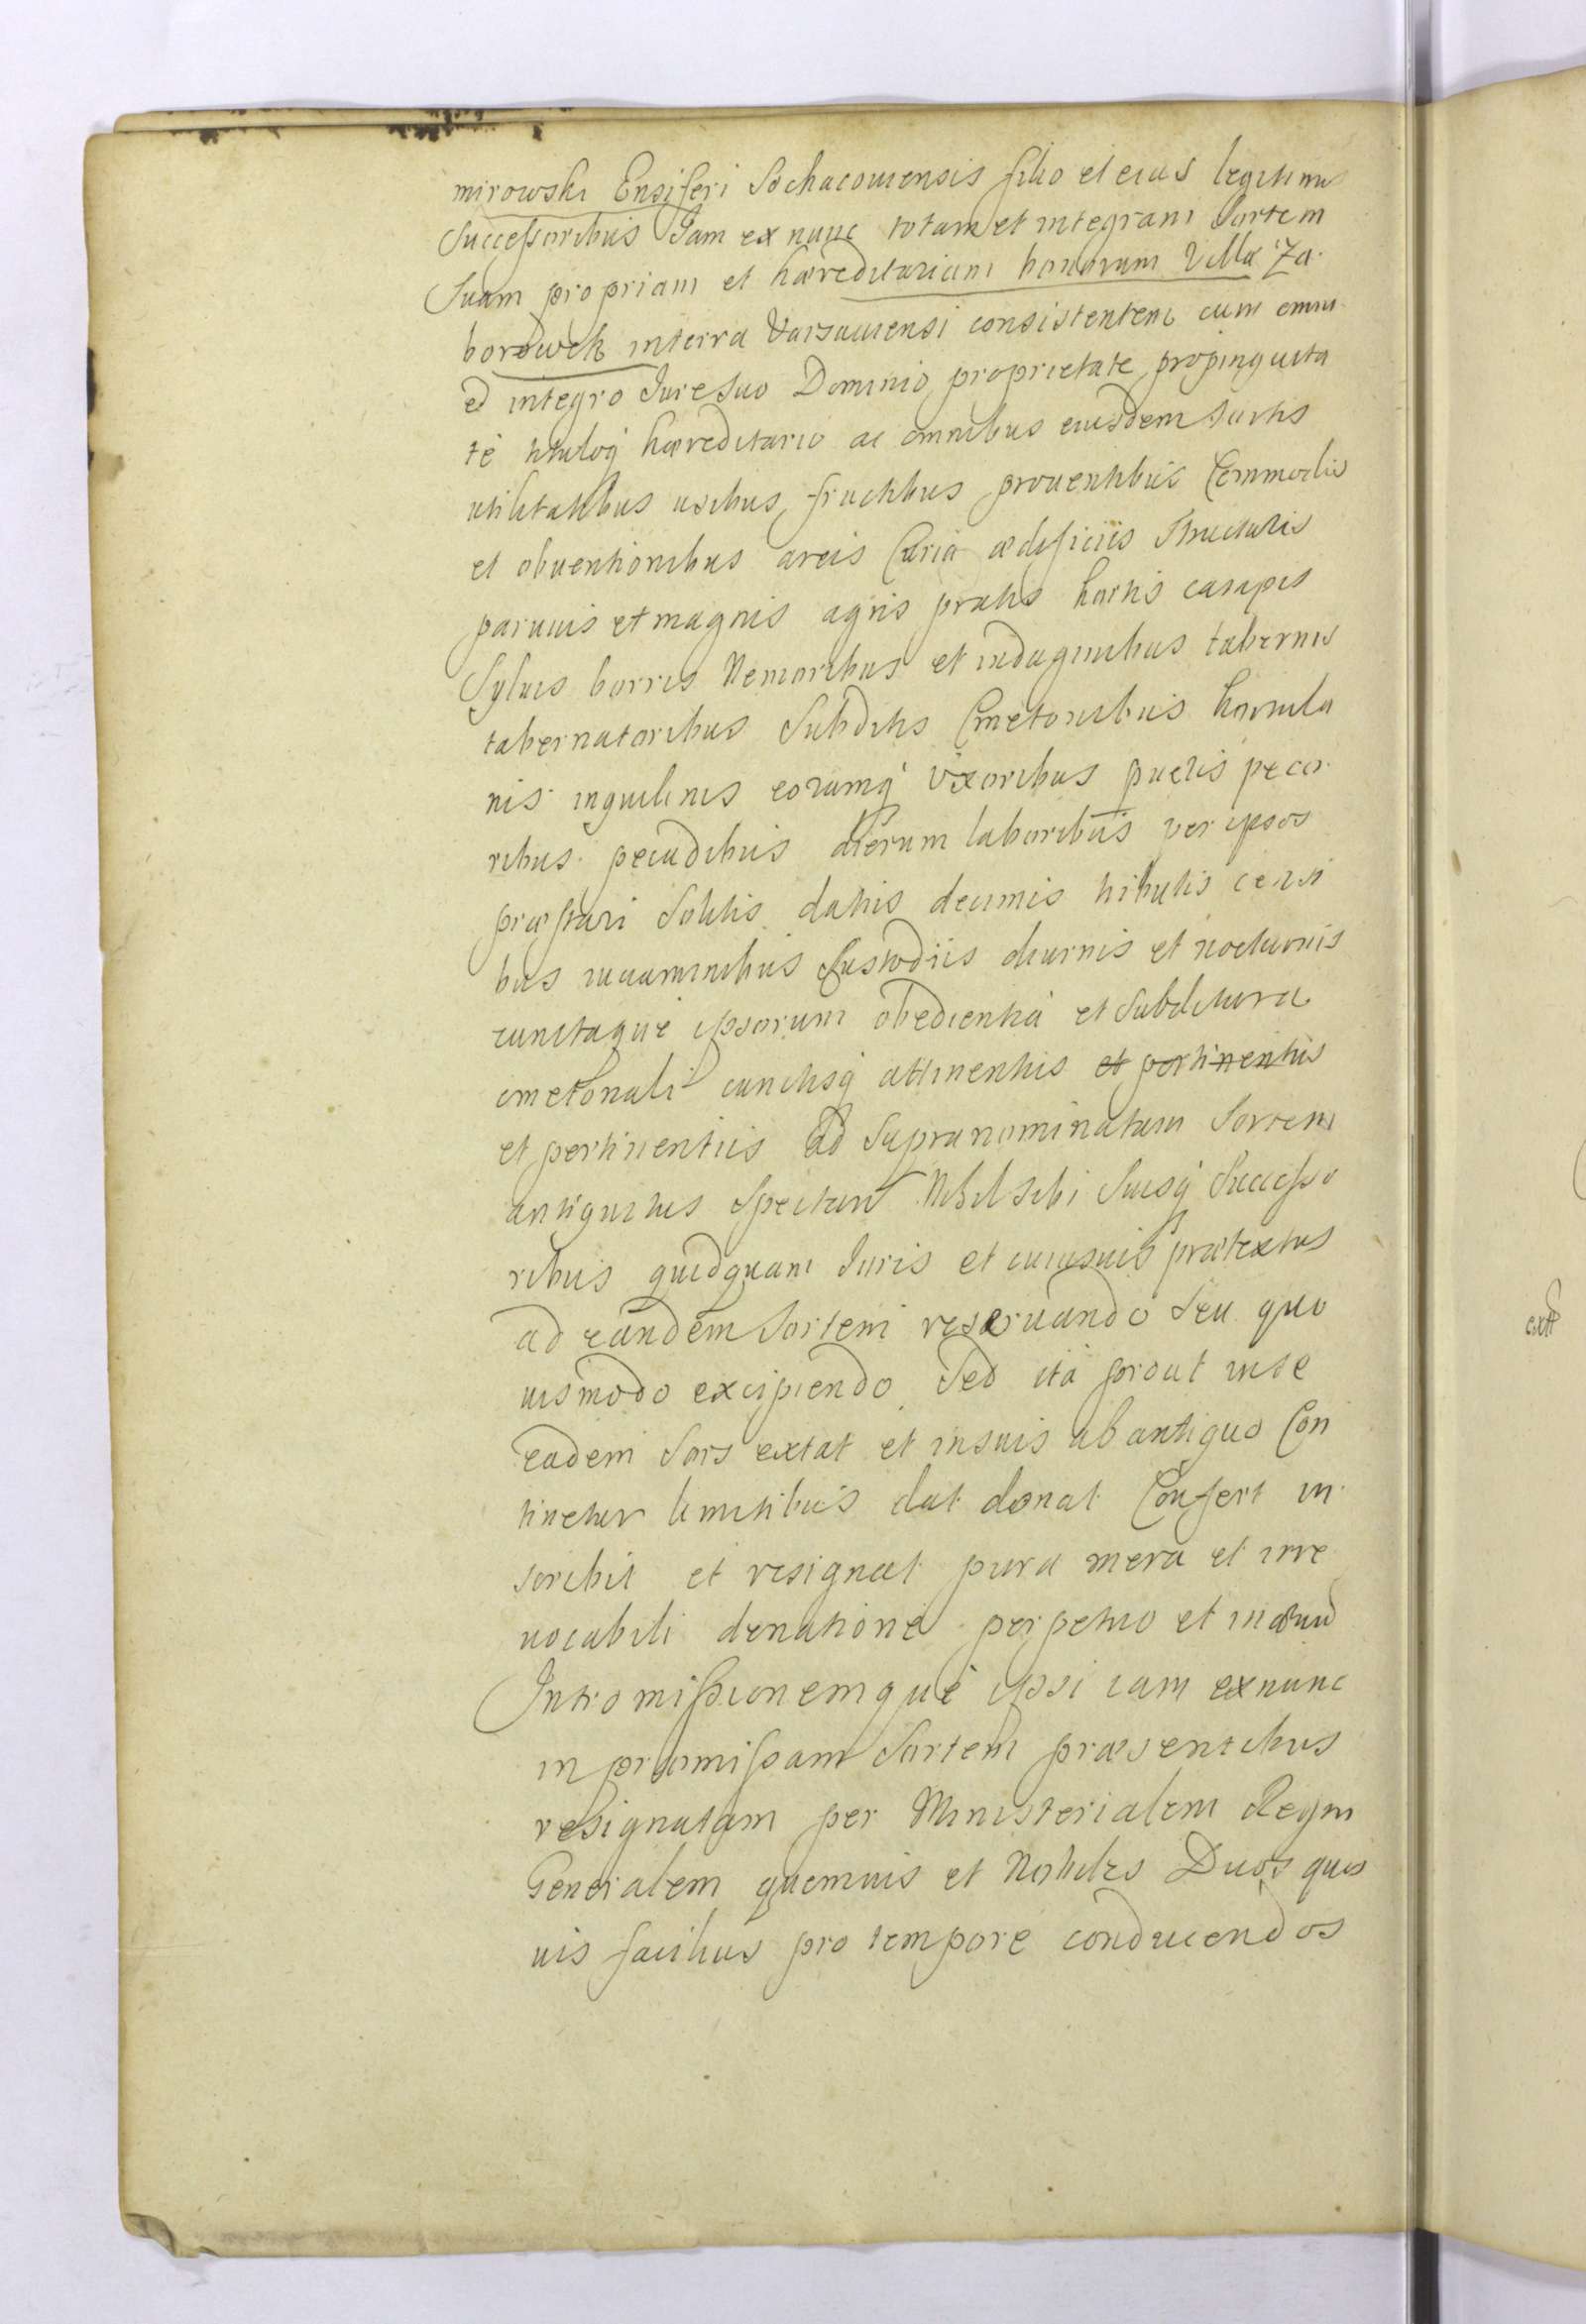 mirowski Ensiferi Sochacouiensis filio et eius legitimis
Successoribus Jam ex nunc totam et integram Sortem
Suam propriam et hæreditariam bonorum Villæ Za
borowek interra Varsauiensi consistentem cum omni
et integro Jure suo Dominio proprietate propinquita
te tituloq hæreditario ac omnibus eiusdem sortis
utilitatibus usibus fructibus prouentibus Commodis
et obuentionibus areis Curia ædificiis Structuris
paruuis et magnis agris pratis hortis campis
Syluis borris Nemoribus et indaginibus tabernis
tabernatoribus Subditis Cmetonibus hortula
nis inquilinis eorumq Uxoribus pueris peco
ribus pecudibus dierum laboribus per ipsos
præstari Solitis datiis decimis tributis censi
bus iuuaminibus Custodiis diurnis et nocturnis
cunctaque ipsorum obedientia et Subditura
cmetonali cunctisq attinentiis et pertinentiis
et pertinentiis ad Supranominatam Sortem
antiquitus Spectan Nihil sibi Suisq Successo
ribus quidquam Juris et cuiusuis prætextus
ad eandem Sortem reseruando Seu quo
uismodo excipiendo Sed ita prout in se
eadem Sors extat et insuis ab antiquo Con
tinetur limitibus dat donat Confert in
scribit et resignat pura mera et irre
uocabili donatione perpetuo et in æuum
Intromissionemque ipsi iam exnunc
in præmissam Sortem præsentibus
resignatam per Ministerialem Regni
Generalem quemuis et Nobiles Duos quos
uis facilius pro tempore conducendos